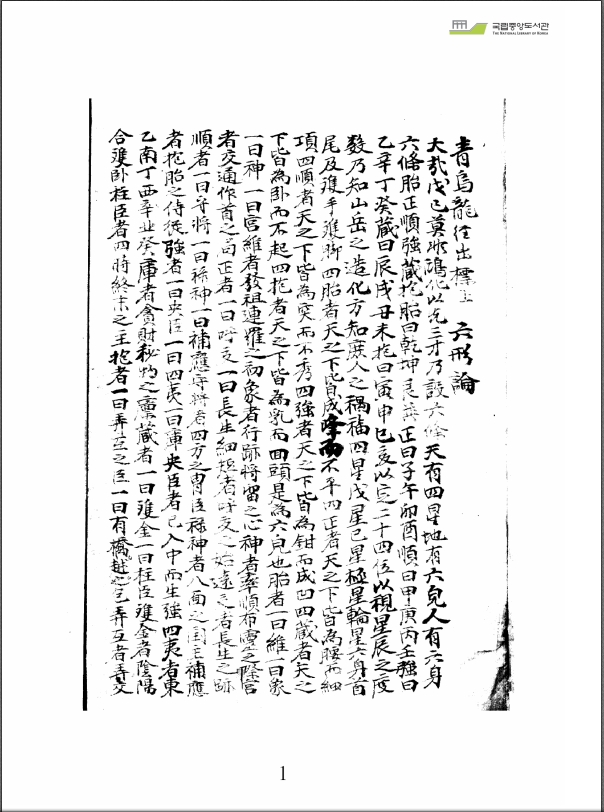 국립중앙도서관
THE NATIONAL LIBRARY OF KOREA
青烏龍經出標 六形論
大哉戊己莫 鴻化以 三才乃設六 天有四星地有六 人有六身
六條胎正順強藏抱胎曰乾坤艮巽正曰子午卯酉順曰甲庚丙壬強曰
乙辛丁癸藏曰辰戌丑未抱曰寅申巳亥以定二十四位以視星辰之度
数乃知山岳之造化方知庶人之禍福四星戊星己星極星輪星六身首
尾及 手 脚四胎者天之下皆成峰而不平四正者天之下皆為腰而細
項四順者天之下皆為突而不秀四強者天之下皆為鉗而成凹四藏者天之
下皆為卧而不起四抱者天之下皆為乳而回頭是為六 也胎者一曰維一曰象
一曰神一曰宮維者發祖連羅之初象者行跡將留之心神者率順布 之際宮
者交通作首之 正者一曰呼 一曰長生細 者呼 之始遠 者長生之跡
順者一曰守將一曰祿神一曰補應守將者四方之胄臣祿神者八面之国主補應
者抱胎之侍從強者一曰央臣一曰四夷一曰庫央臣者己入中而生強四夷者東
乙南丁西辛北癸庫者貪財秘 之 藏者一曰 金一曰柱臣 金者陰陽
合 卧柱臣者四將終末之主抱者一曰弄互之臣一曰有橋越之 弄互者弄交
1